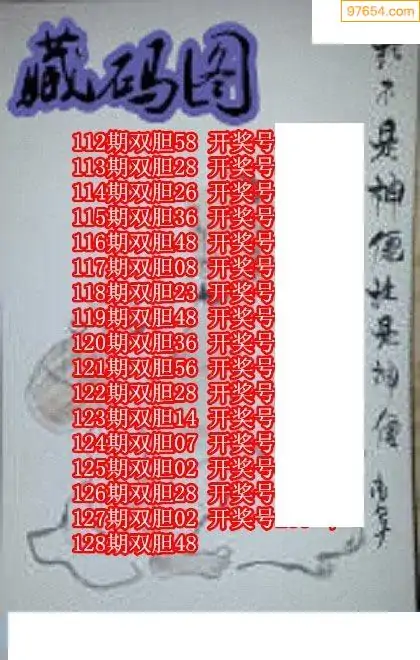 97654.com
藏码图
112期双胆58 开奖号
113期双胆28 开奖号
114期双胆26 开奖号
115期双胆36 开奖号
116期双胆48 开奖号
117期双胆08 开奖号
118期双胆23 开奖号
119期双胆48 开奖号
120期双胆36 开奖号
121期双胆56 开奖号
122期双胆28 开奖号
123期双胆14 开奖号
124期双胆07 开奖号
125期双胆02 开奖号
126期双胆28 开奖号
127期双胆02 开奖号
128期双胆48
不是神仙胜是神仙